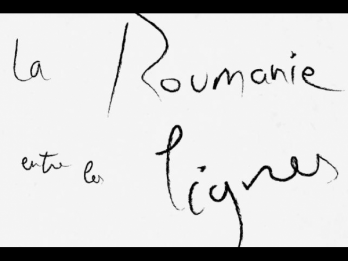 la Roumanie
entre les lignes